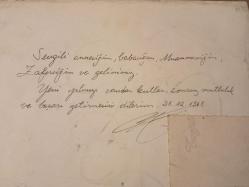 Sevgili anneciğim, babacığım, Muammerciğim,
Zaferciğim ve gelinimiz,
Yeni yılınızı candan kutlar, sonsuz mutluluk
ve başarı getirmesini dilerim. 28.12.